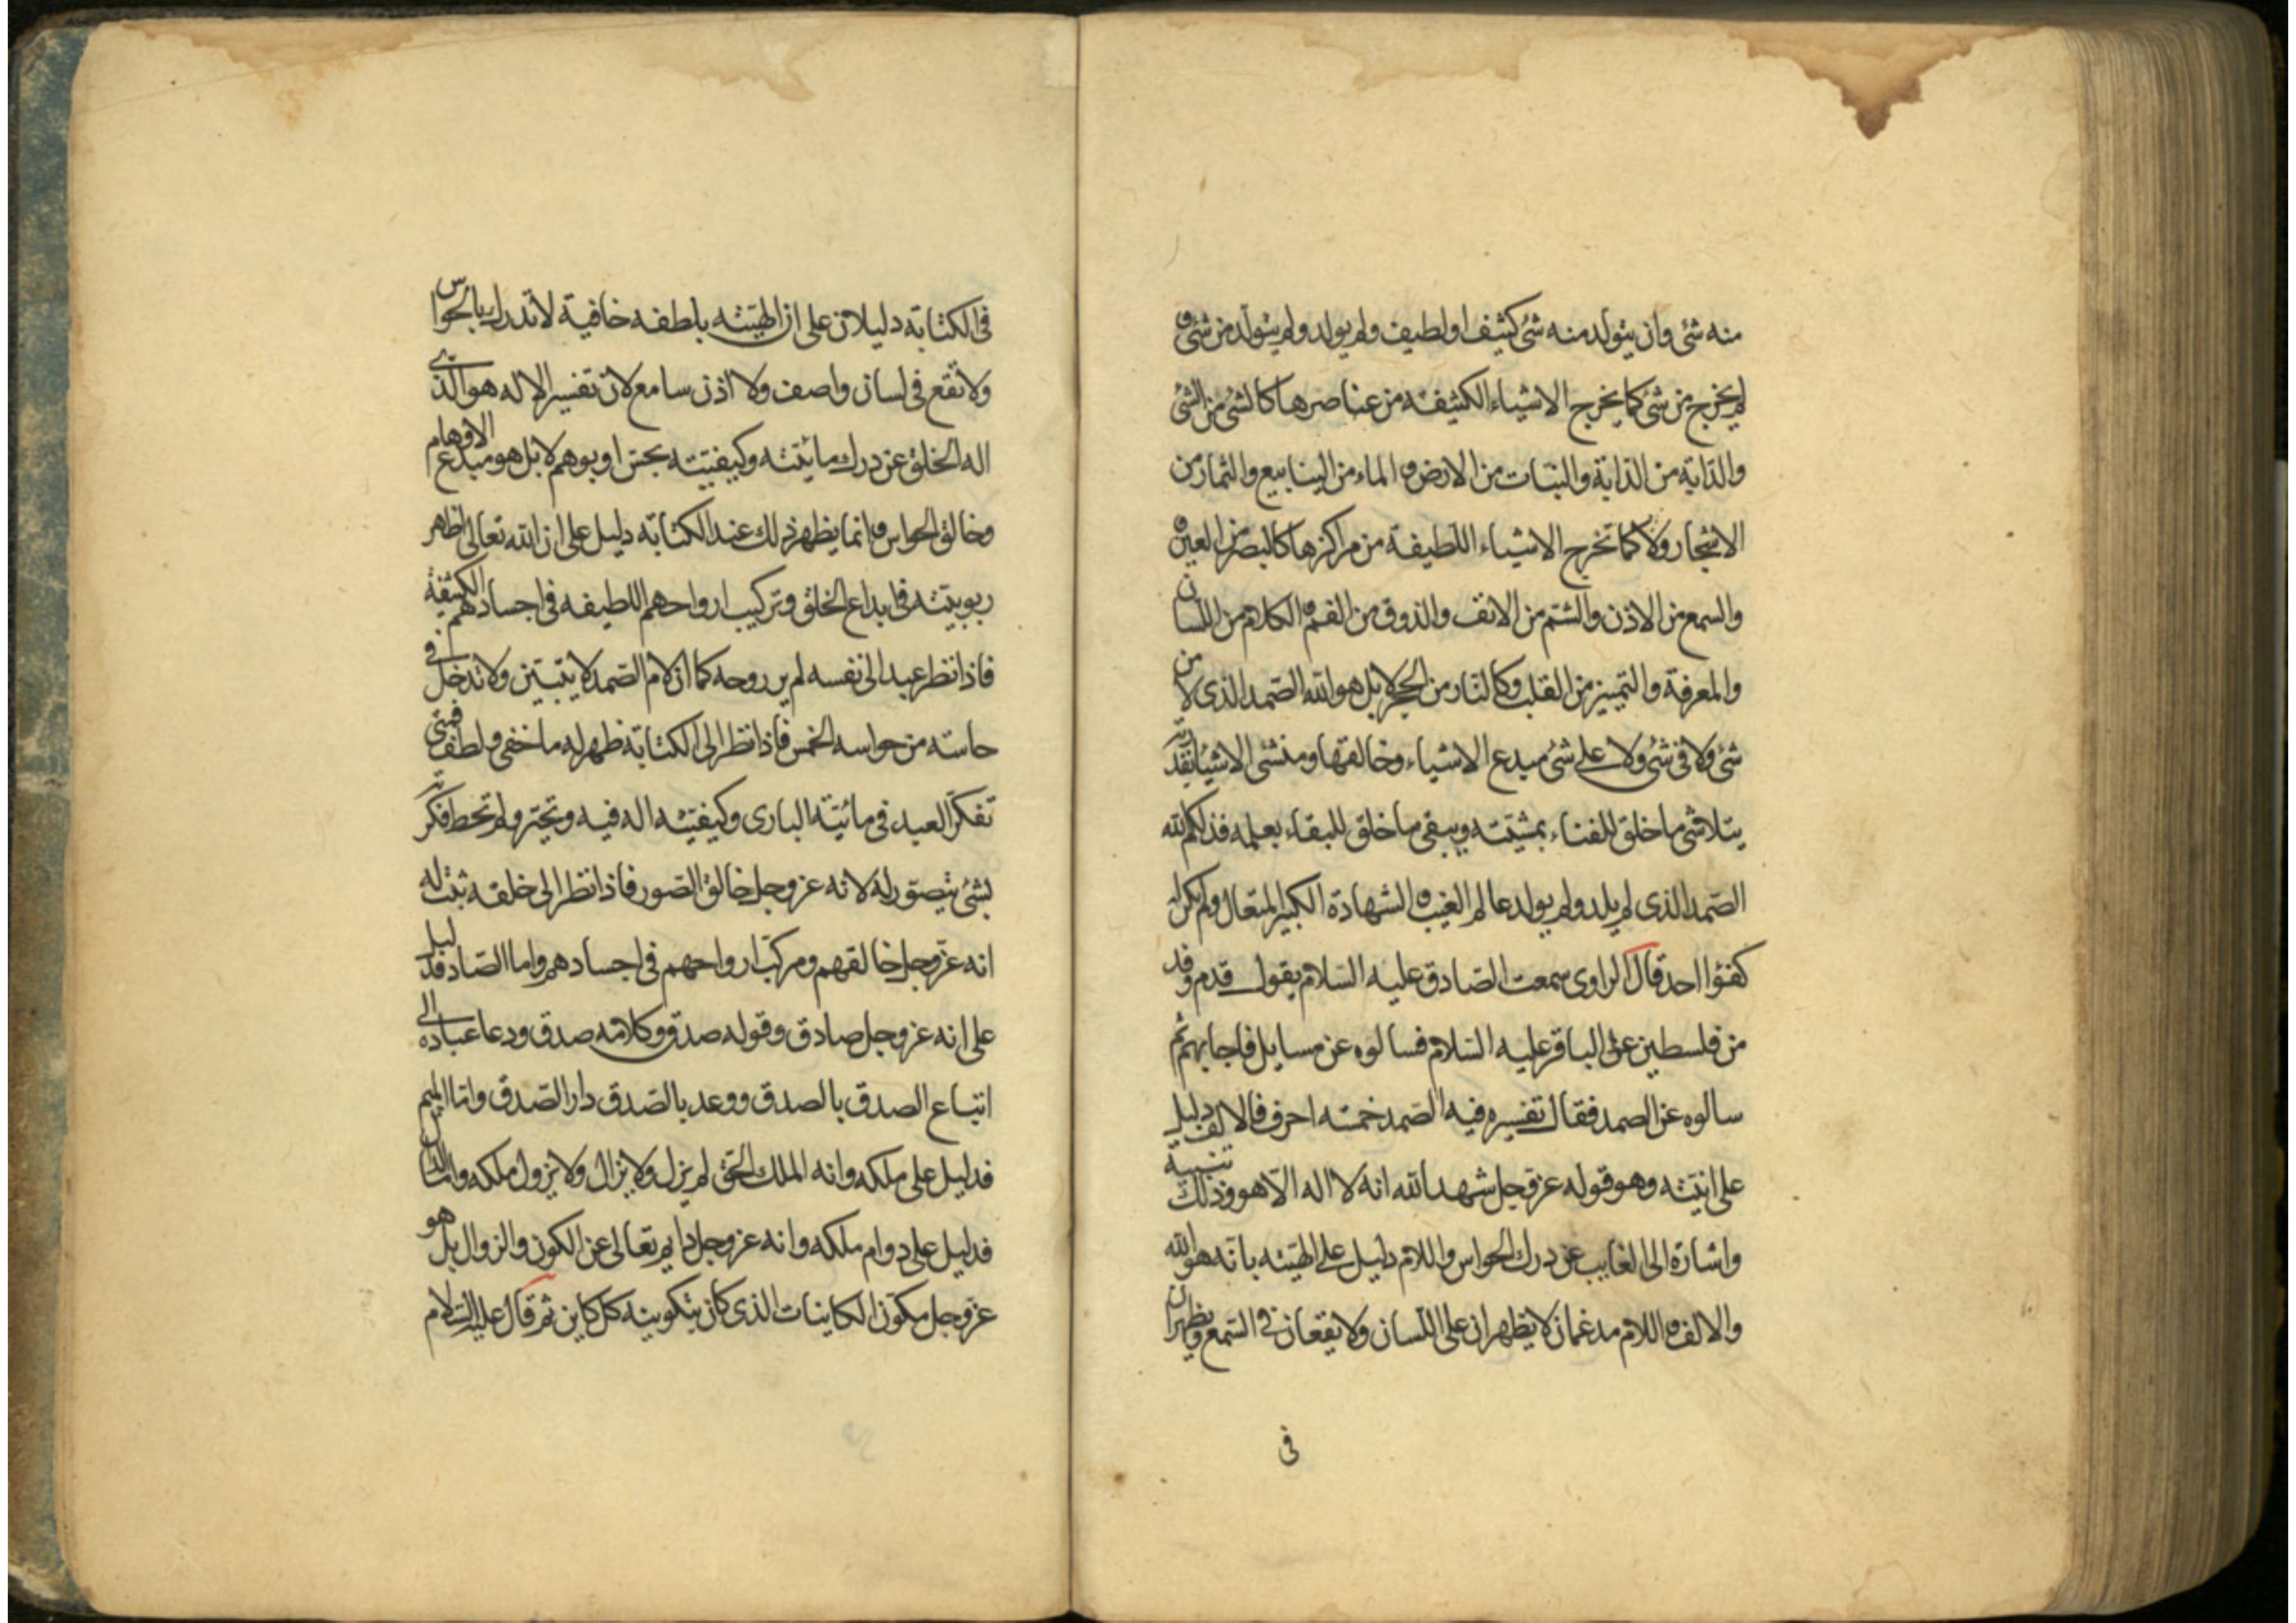 منه شئ وان يتولد منه شئ كثيف او لطيف ولم يولد ولم يتولد من شئ و
لم يخرج من شئ كما يخرج الاشياء الكثيفة من عناصرها كالشئ من الشئ
والدابة من الدابة والنبات من الارض و الماء من الينابيع والثمار من
الاشجار ولا كما تخرج الاشياء اللطيفة من مراكزها كالبصر من العين و
والسمع من الاذن والشم من الانف والذوق من الفم و الكلام من اللسان
والمعرفة والتمييز من القلب وكالنار من الحجر لا بل هو الله الصمد الذى لا من
شئ ولا فى شئ ولا على شئ مبدع الاشياء وخالقها ومنشئ الاشياء بقدرته
يتلاشى ما خلق للفناء بمشيته ويبقى ما خلق للبقاء بعلمه فذلكم الله
الصمد الذى لم يلد ولم يولد عالم الغيب و الشهادة الكبير المتعال ولم يكن له
كفوا احد قال الراوى سمعت الصادق عليه السلام يقول قدم وفد
من فلسطين على الباقر عليه السلام فسالوه عن مسايل فاجابهم ثم
سالوه عن الصمد فقال تفسيره فيه الصمد خمسه احرف فالالف دليل
على انيته وهو قوله عز وجل شهد الله انه لا اله الا هو وذلك تنبيه
واشارة الى الغايب عن درك الحواس واللام دليل على الهيته بانه هو الله
والالف و اللام مدغمان لا يظهران على اللسان ولا يقعان فى السمع ويظهران
فى
فى الكتابة دليلان على ان الهيته بلطفه خافية لا تدرك بالحواس
ولا تقع فى لسان واصف ولا اذن سامع لان تفسير الاله هو الذى
اله الخلق عن درك مائيته وكيفيته بحس او بوهم لا بل هو مبدع الاوهام
وخالق الحواس و انما يظهر ذلك عند الكتابة دليل على ان الله تعالى اظهر
ربوبيته فى ابداع الخلق وتركيب ارواحهم اللطيفه فى اجسادهم الكثيفة
فاذا نظر عبد الى نفسه لم ير روحه كما ان لام الصمد لا يتبين ولا تدخل فى
حاسته من حواسه الخمس فاذا نظر الى الكتابة ظهر له ما خفى ولطف فمتى
تفكر العبد فى مائية البارى وكيفيته اله فيه وتحير ولم تحط فكرته
بشئ يتصور له لانه عز وجل خالق الصور فاذا نظر الى خلقه ثبت له
انه عز وجل خالقهم ومركب ارواحهم فى اجسادهم واما الصاد فدليل
على انه عز وجل صادق وقوله صدق وكلامه صدق ودعا عباده الى
اتباع الصدق بالصدق ووعد بالصدق دار الصدق واما الميم
فدليل على ملكه وانه الملك الحق لم يزل ولا يزال ولا يزول ملكه واما الدال
فدليل على دوام ملكه وانه عز وجل دايم تعالى عن الكون والزوال بل هو
عز وجل مكون الكاينات الذى كان بتكوينه كل كاين ثم قال عليه السلام